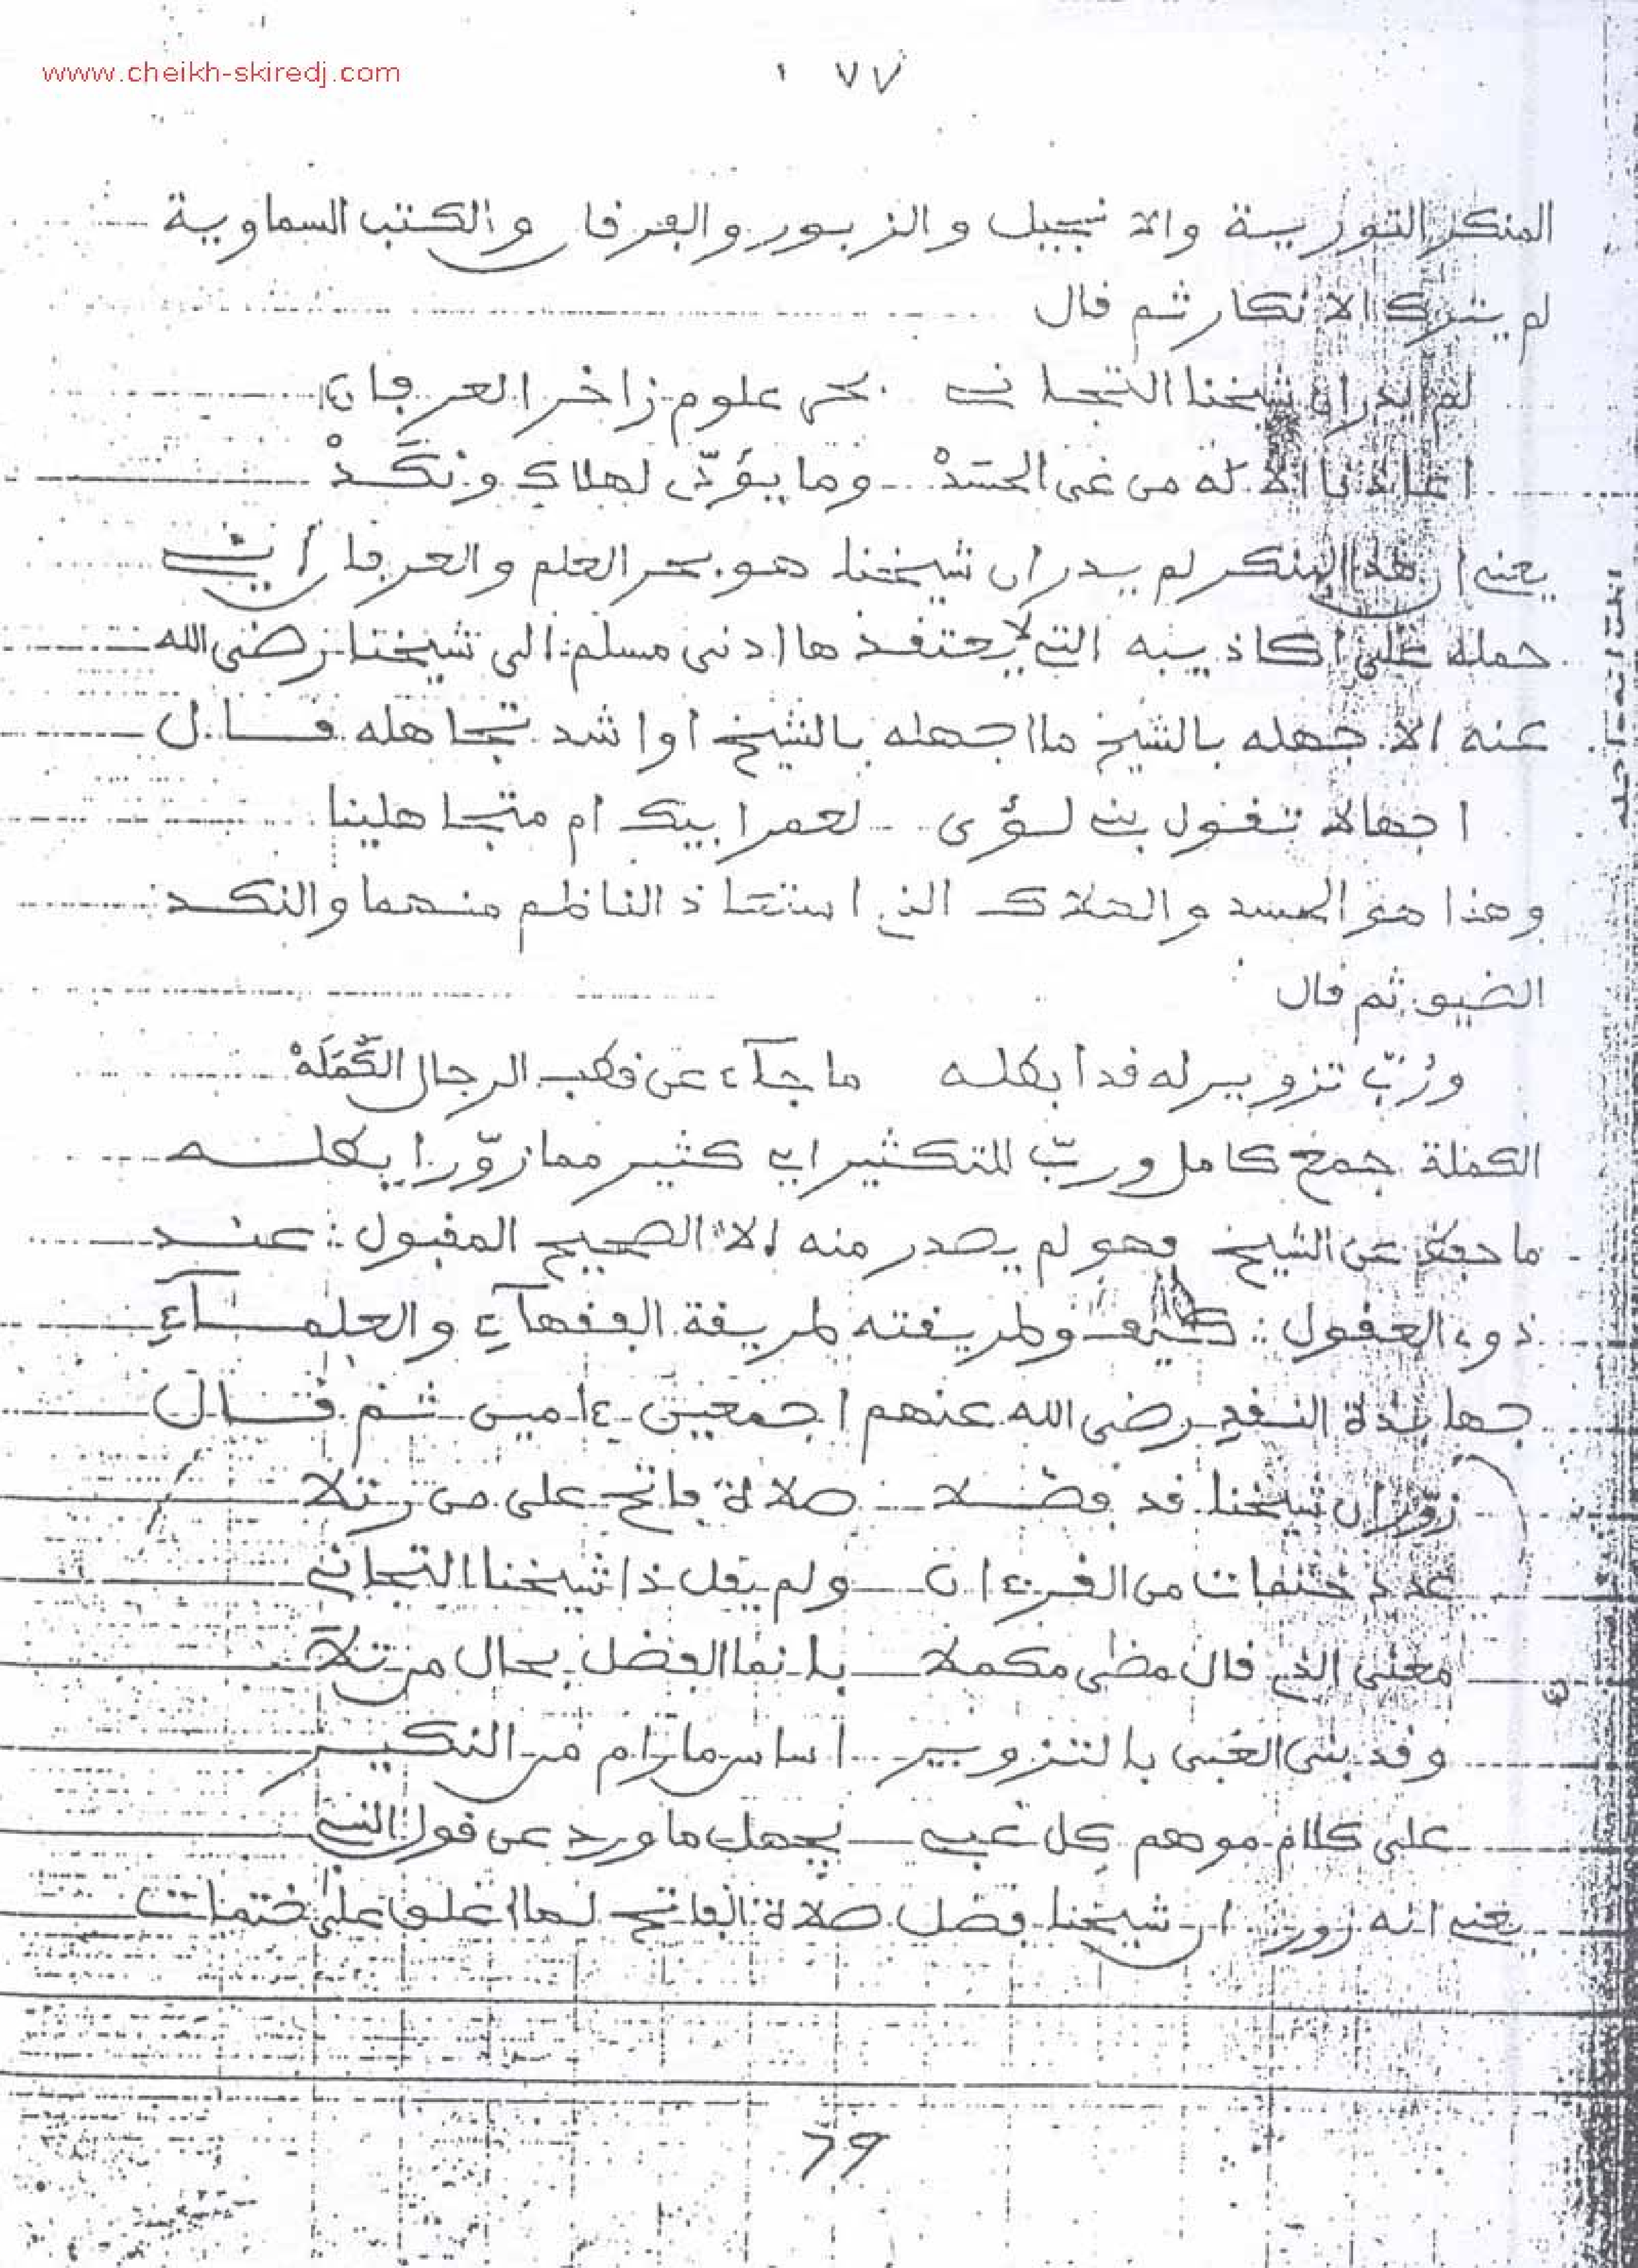 www.cheikh-skiredj.com
٧٧ ١
المنكر التورية والانجيل والزبور والفرقان والكتب السماوية
لم يترك الانكار ثم قال
لم يدر ان شيخنا التجاني بحر علوم زاخر العرفان
اعاذنا الاله من غى الحسَدْ وما يؤدّى لهلاك ونَكَدْ
يعني ان هذا المنكر لم يدر ان شيخنا هو بحر العلم والعرفان
حمله على اكاذيبه التي لا يعتقدها ادنى مسلم الى شيخنا رضى الله
عنه الا جهله بالشيخ ما اجهله بالشيخ او اشد تجاهله قال
اجهالا تقول بني لؤى لعمر ابيك ام متجاهلينا
وهذا هو الحسد والهلاك الذي استعاذ الناظم منهما والنكد
الضيق ثم قال
ورُبّ تزوير له قد ابطله ما جآء عن قطب الرجال الكُمَلَهْ
الكملة جمع كامل وربّ للتكثير اي كثير مما زوّر ابطله
ما حفظ عن الشيخ فهو لم يصدر منه الا الصحيح المقبول : عند
ذوي العقول : كيف وطريقته طريقة الفقهآء والعلمآء
جهابذة النقد رضى الله عنهم اجمعين ءامين ثم قال
زوّر ان شيخنا قد فضّلا صلاة فاتح على من رتلا
عدد ختمات من القرءان ولم يقل ذا شيخنا التجاني
معنى الذي قال مضى مكملا بانما الفضل بحال من تلا
وقد بنى الغبى بالتزوير اساس ما رام من النكير
على كلام موهم كل غبي يجهل ما ورد عن قول النبي
يعني انه زور ان شيخنا فضل صلاة الفاتح لما اغلق على ختمات
٦٩